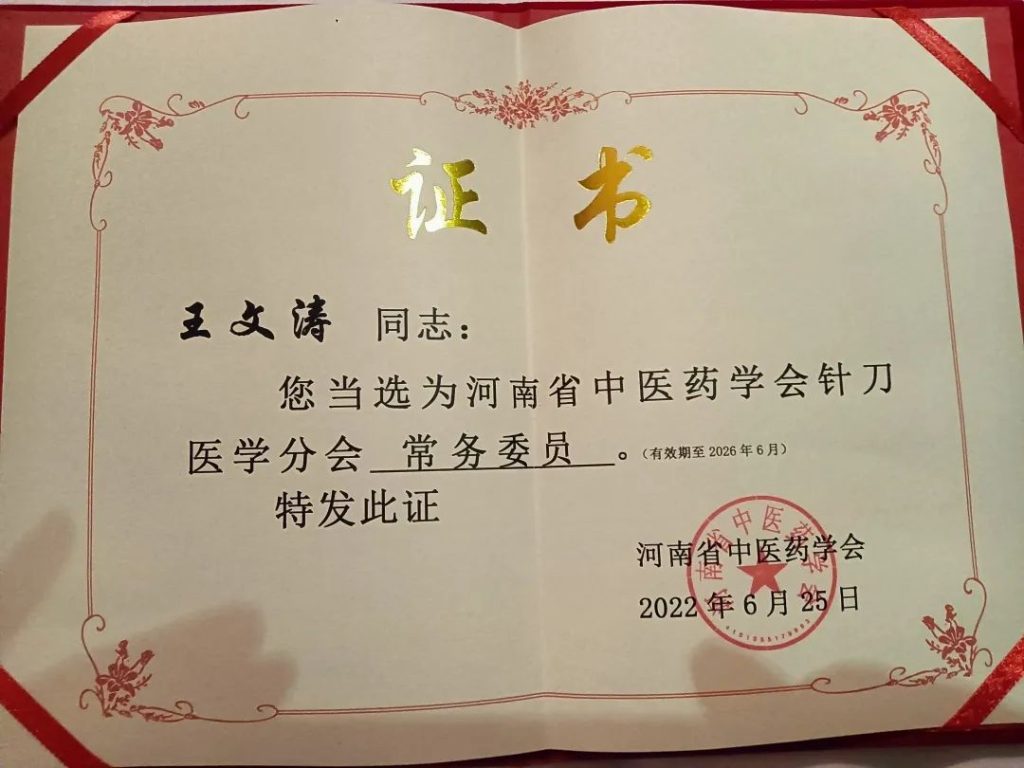 证书
王文涛 同志：
您当选为河南省中医药学会针刀
医学分会 常务委员 。（有效期至2026年6月）
特发此证
河南省中医药学会
2022年6月25日
河南省中医药学会